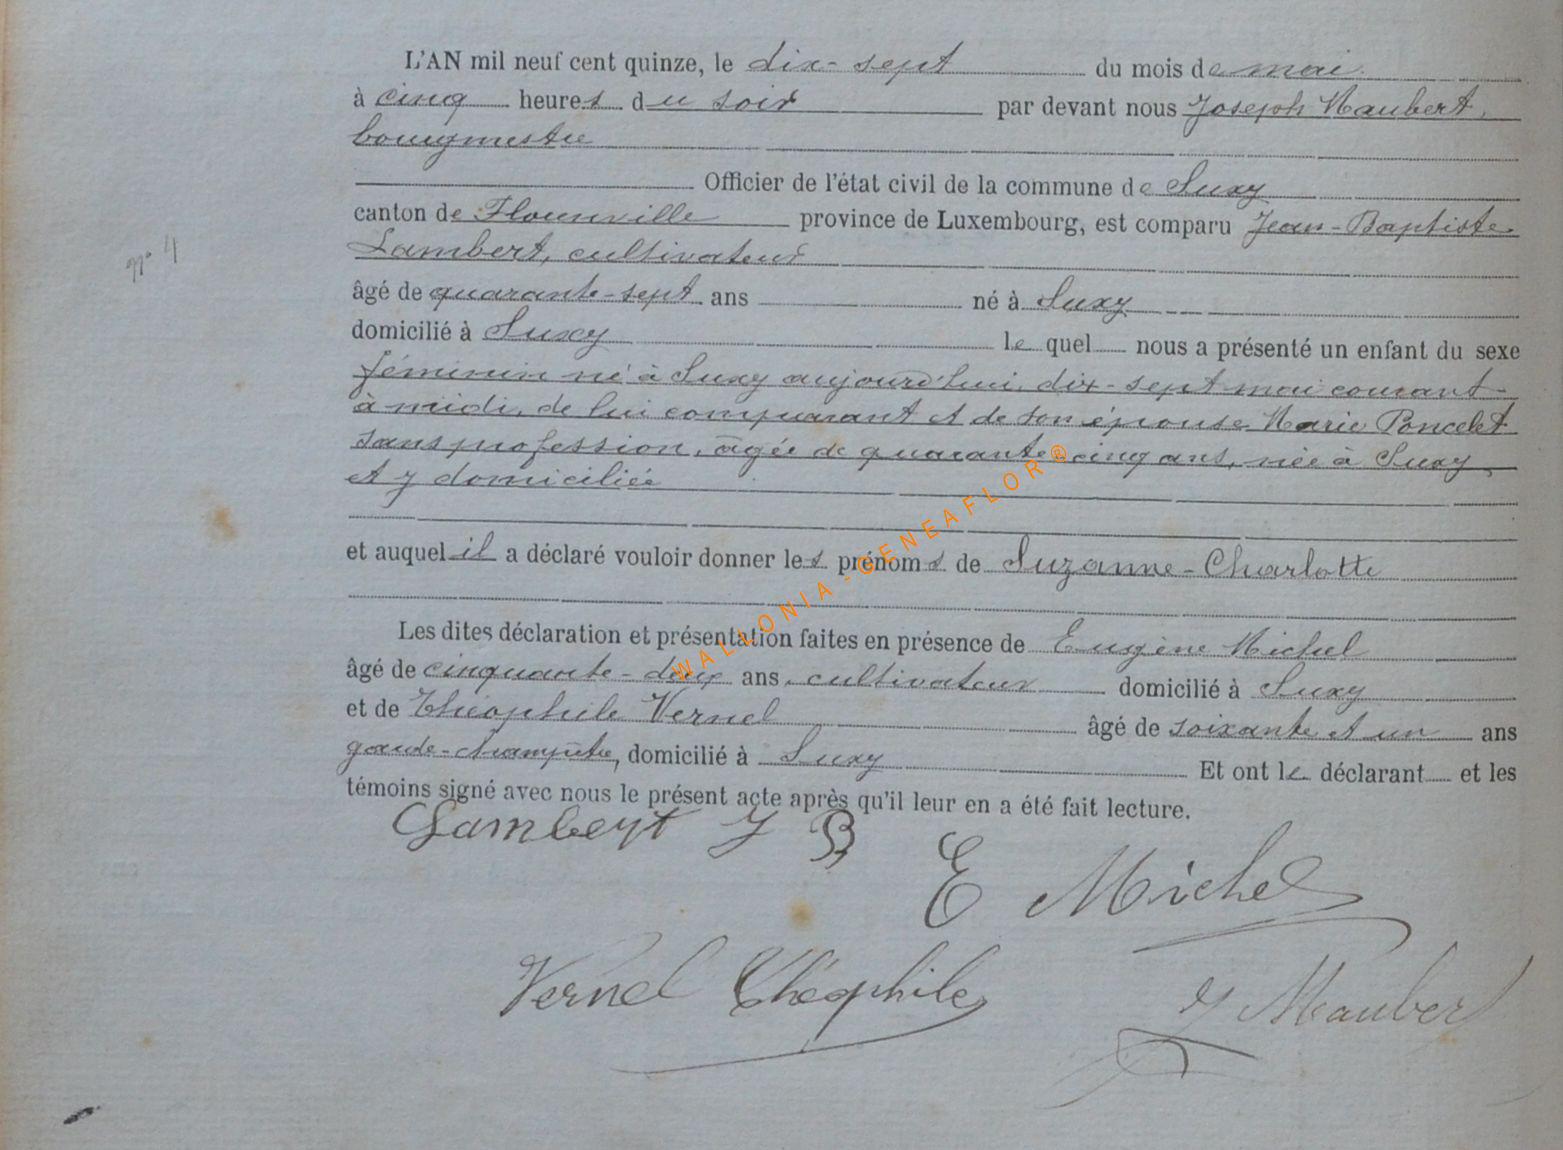 L'AN mil neuf cent quinze, le dix-sept du mois de mai
à cinq heures du soir par devant nous Joseph Maubert,
bourgmestre
Officier de l'état civil de la commune de Suxy
canton de Florenville province de Luxembourg, est comparu Jean-Baptiste
Lambert, cultivateur
n° 4
âgé de quarante-sept ans né à Suxy
domicilié à Suxy le quel nous a présenté un enfant du sexe
féminin né à Suxy aujourd'hui, dix-sept mai courant
à midi, de lui comparant et de son épouse Marie Poncelet
sans profession, âgée de quarante-cinq ans, née à Suxy,
et y domiciliée
et auquel il a déclaré vouloir donner les prénoms de Suzanne-Charlotte
Les dites déclaration et présentation faites en présence de Eugène Michel
âgé de cinquante-deux ans, cultivateur domicilié à Suxy
et de Théophile Vernel âgé de soixante et un ans
garde-champêtre, domicilié à Suxy Et ont le déclarant et les
témoins signé avec nous le présent acte après qu'il leur en a été fait lecture.
Lambert J B
E Michel
Vernel Théophile
J Maubert
WALLONIA-GENEAFLOR®